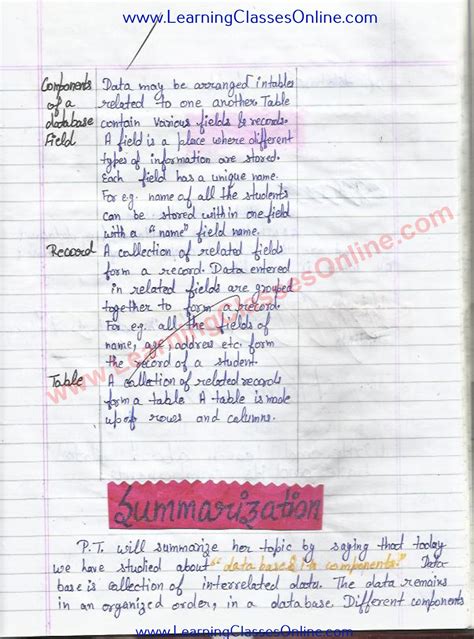 www.LearningClassesOnline.com
Components of a database
Data may be arranged in tables
related to one another Table
contain various fields & records.
Field
A field is a place where different
types of information are stored.
Each field has a unique name.
For eg. name of all the students
can be stored within one field
with a "name" field name.
Record
A collection of related fields
form a record. Data entered
in related fields are grouped
together to form a record.
For eg. all the fields of
name, age, address etc. form
the record of a student
Table
A collection of related records
form a table. A table is made
up of rows and columns.
www.LearningClassesOnline.com
Summarization
P.T. will summarize her topic by saying that today
we have studied about "database & its components." Data-
base is collection of interrelated data. The data remains
in an organized order, in a database. Different components
www.LearningClassesOnline.com